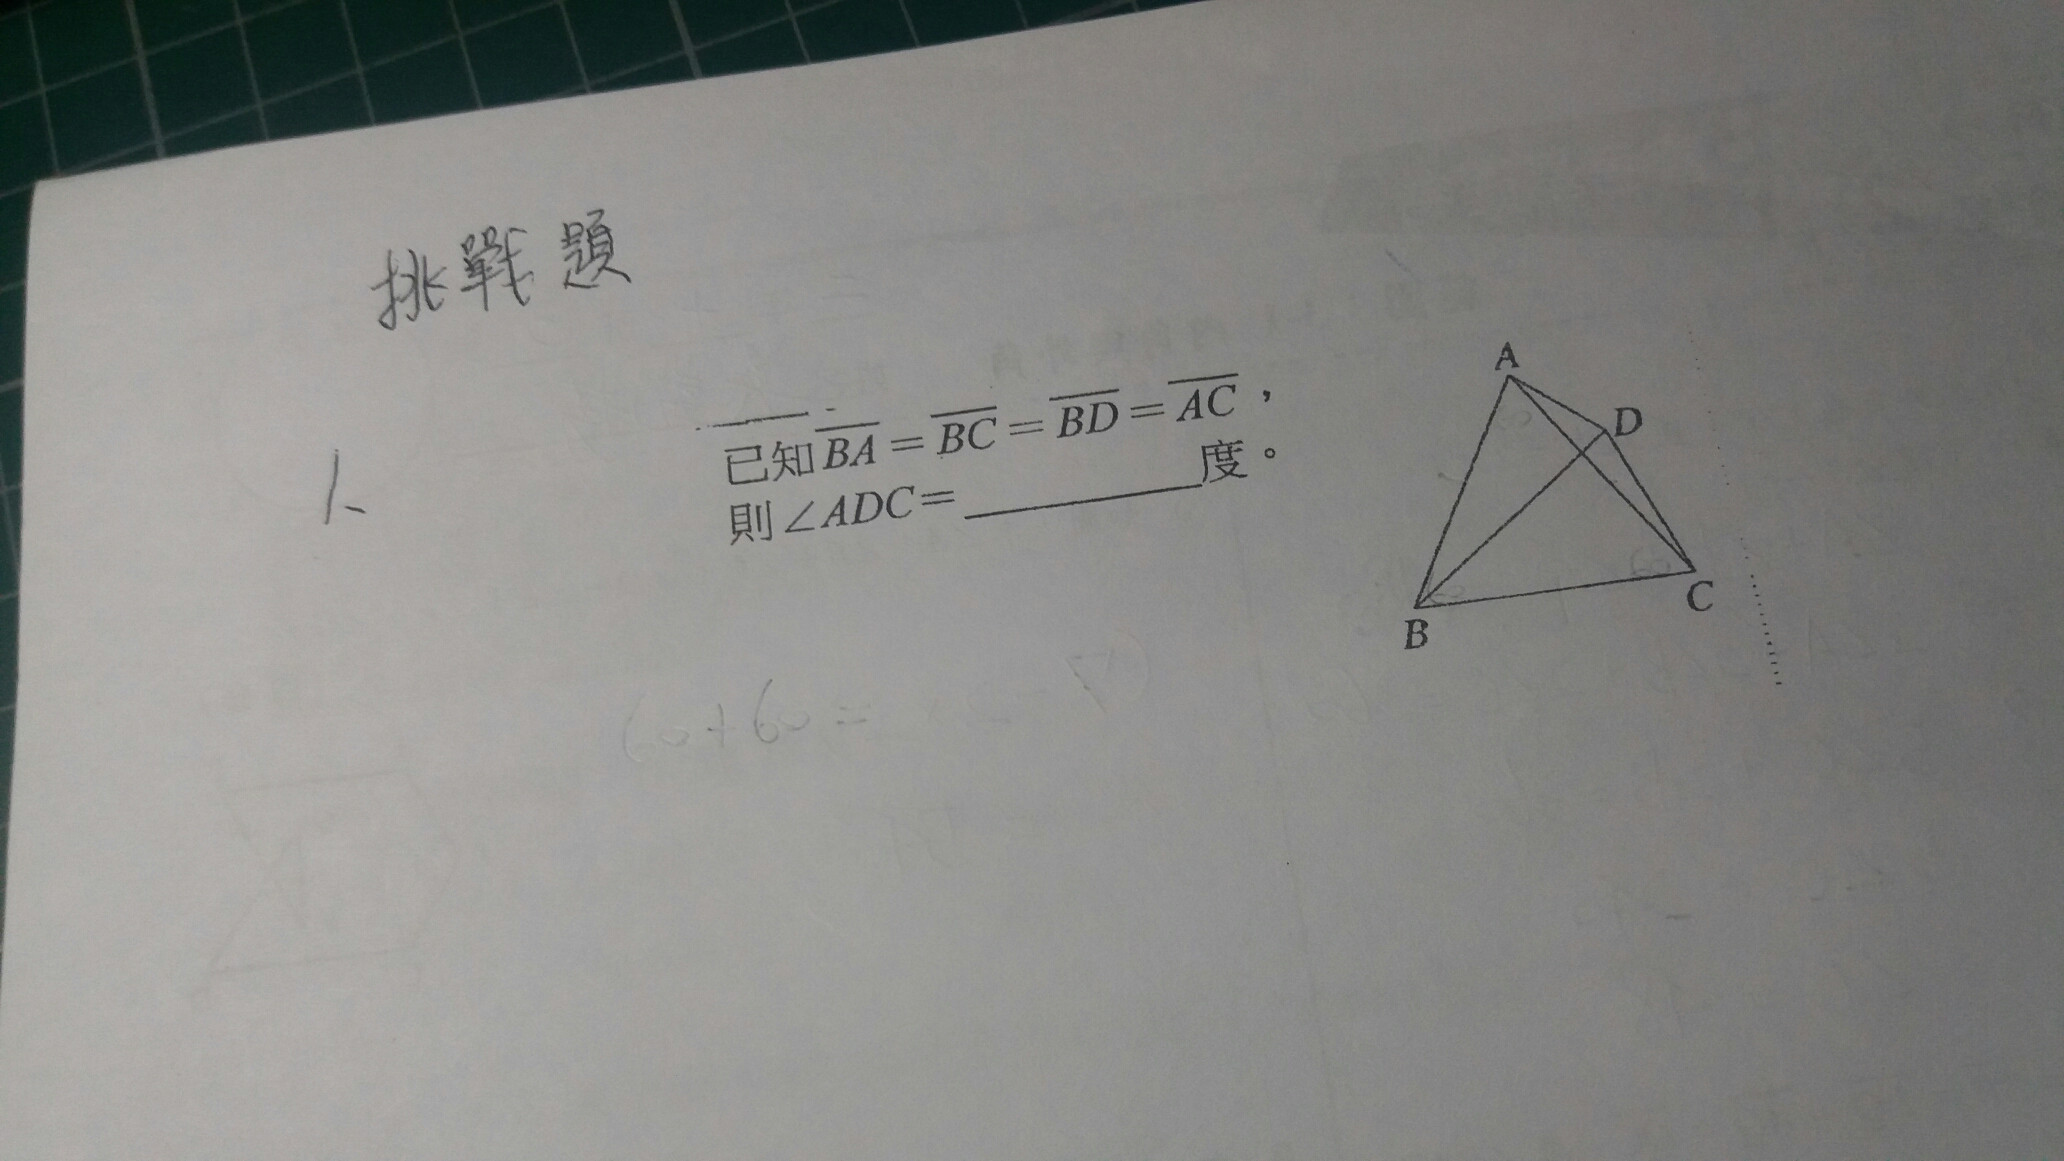 挑戰題
1、
已知BA=BC=BD=AC，
則∠ADC=________度。
A
D
B
C
60+60=